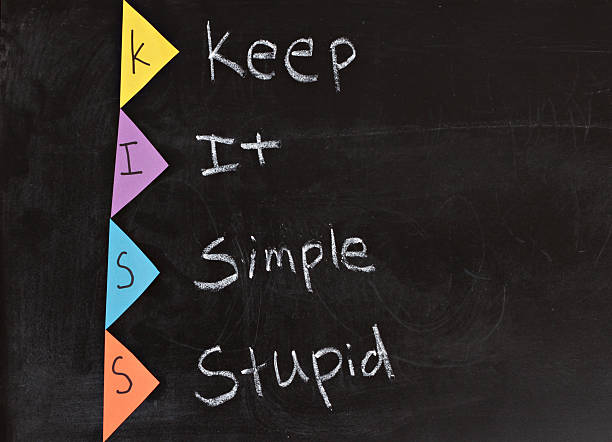 K Keep
I It
S Simple
S Stupid